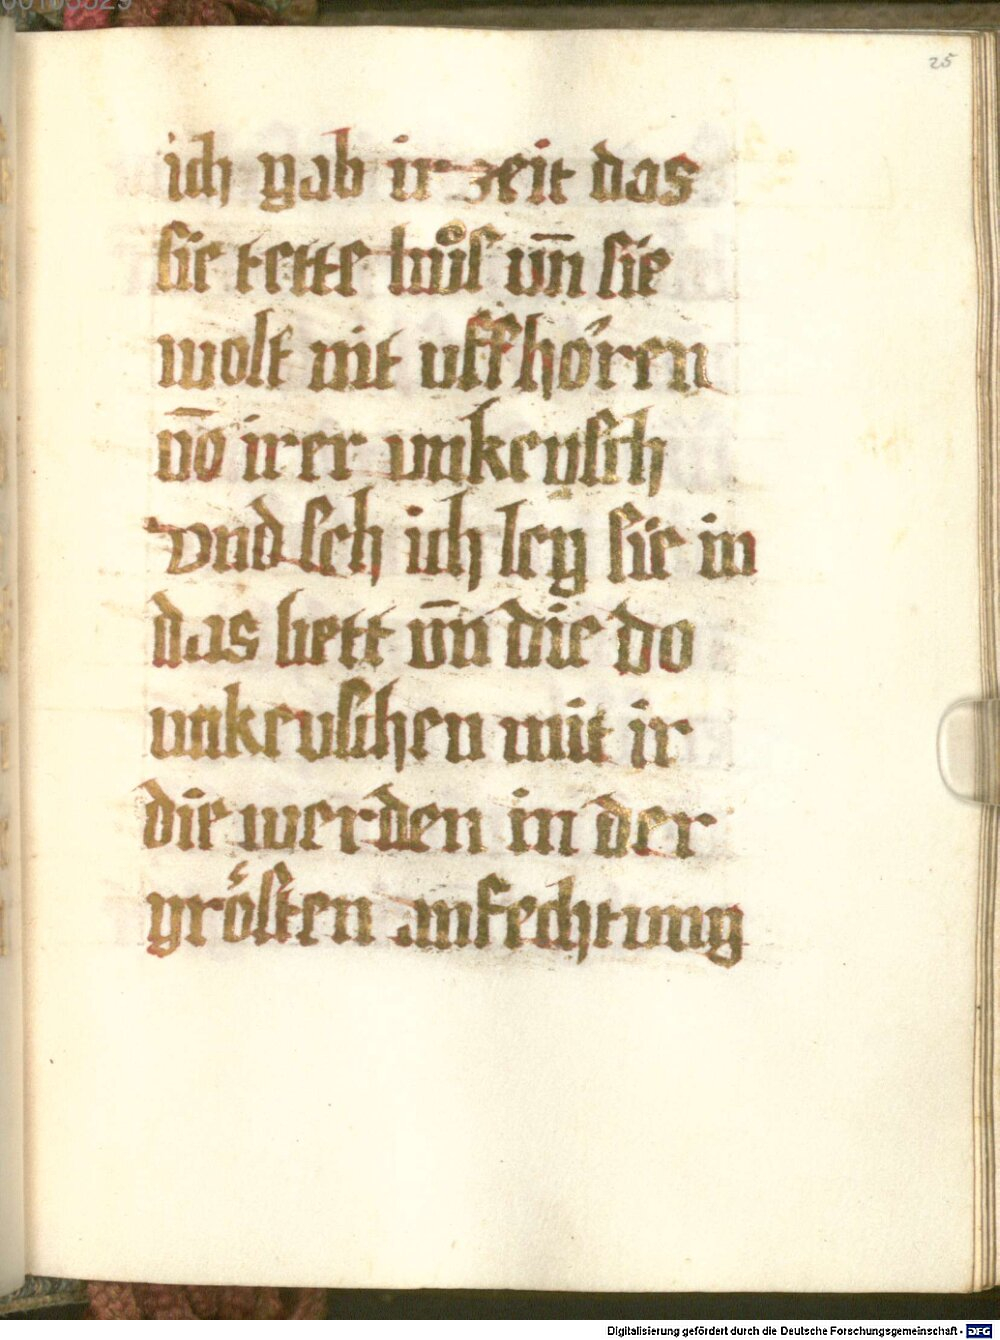 25
ich gab ir zeit das
sie tette bůs vn̄ sie
wolt nit uffhören
vō irer unkeusch
vnd seh ich leg sie in
das bett vn̄ die do
unkeuschen mit ir
die werden in der
grösten anfechtung
Digitalisierung gefördert durch die Deutsche Forschungsgemeinschaft - DFG